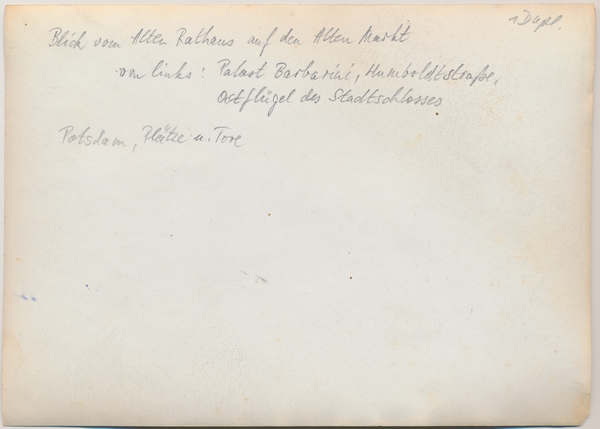 1 Dupl.
Blick vom Alten Rathaus auf den Alten Markt
von links: Palast Barbarini, Humboldtstraße,
Ostflügel des Stadtschlosses
Potsdam, Plätze u. Tore